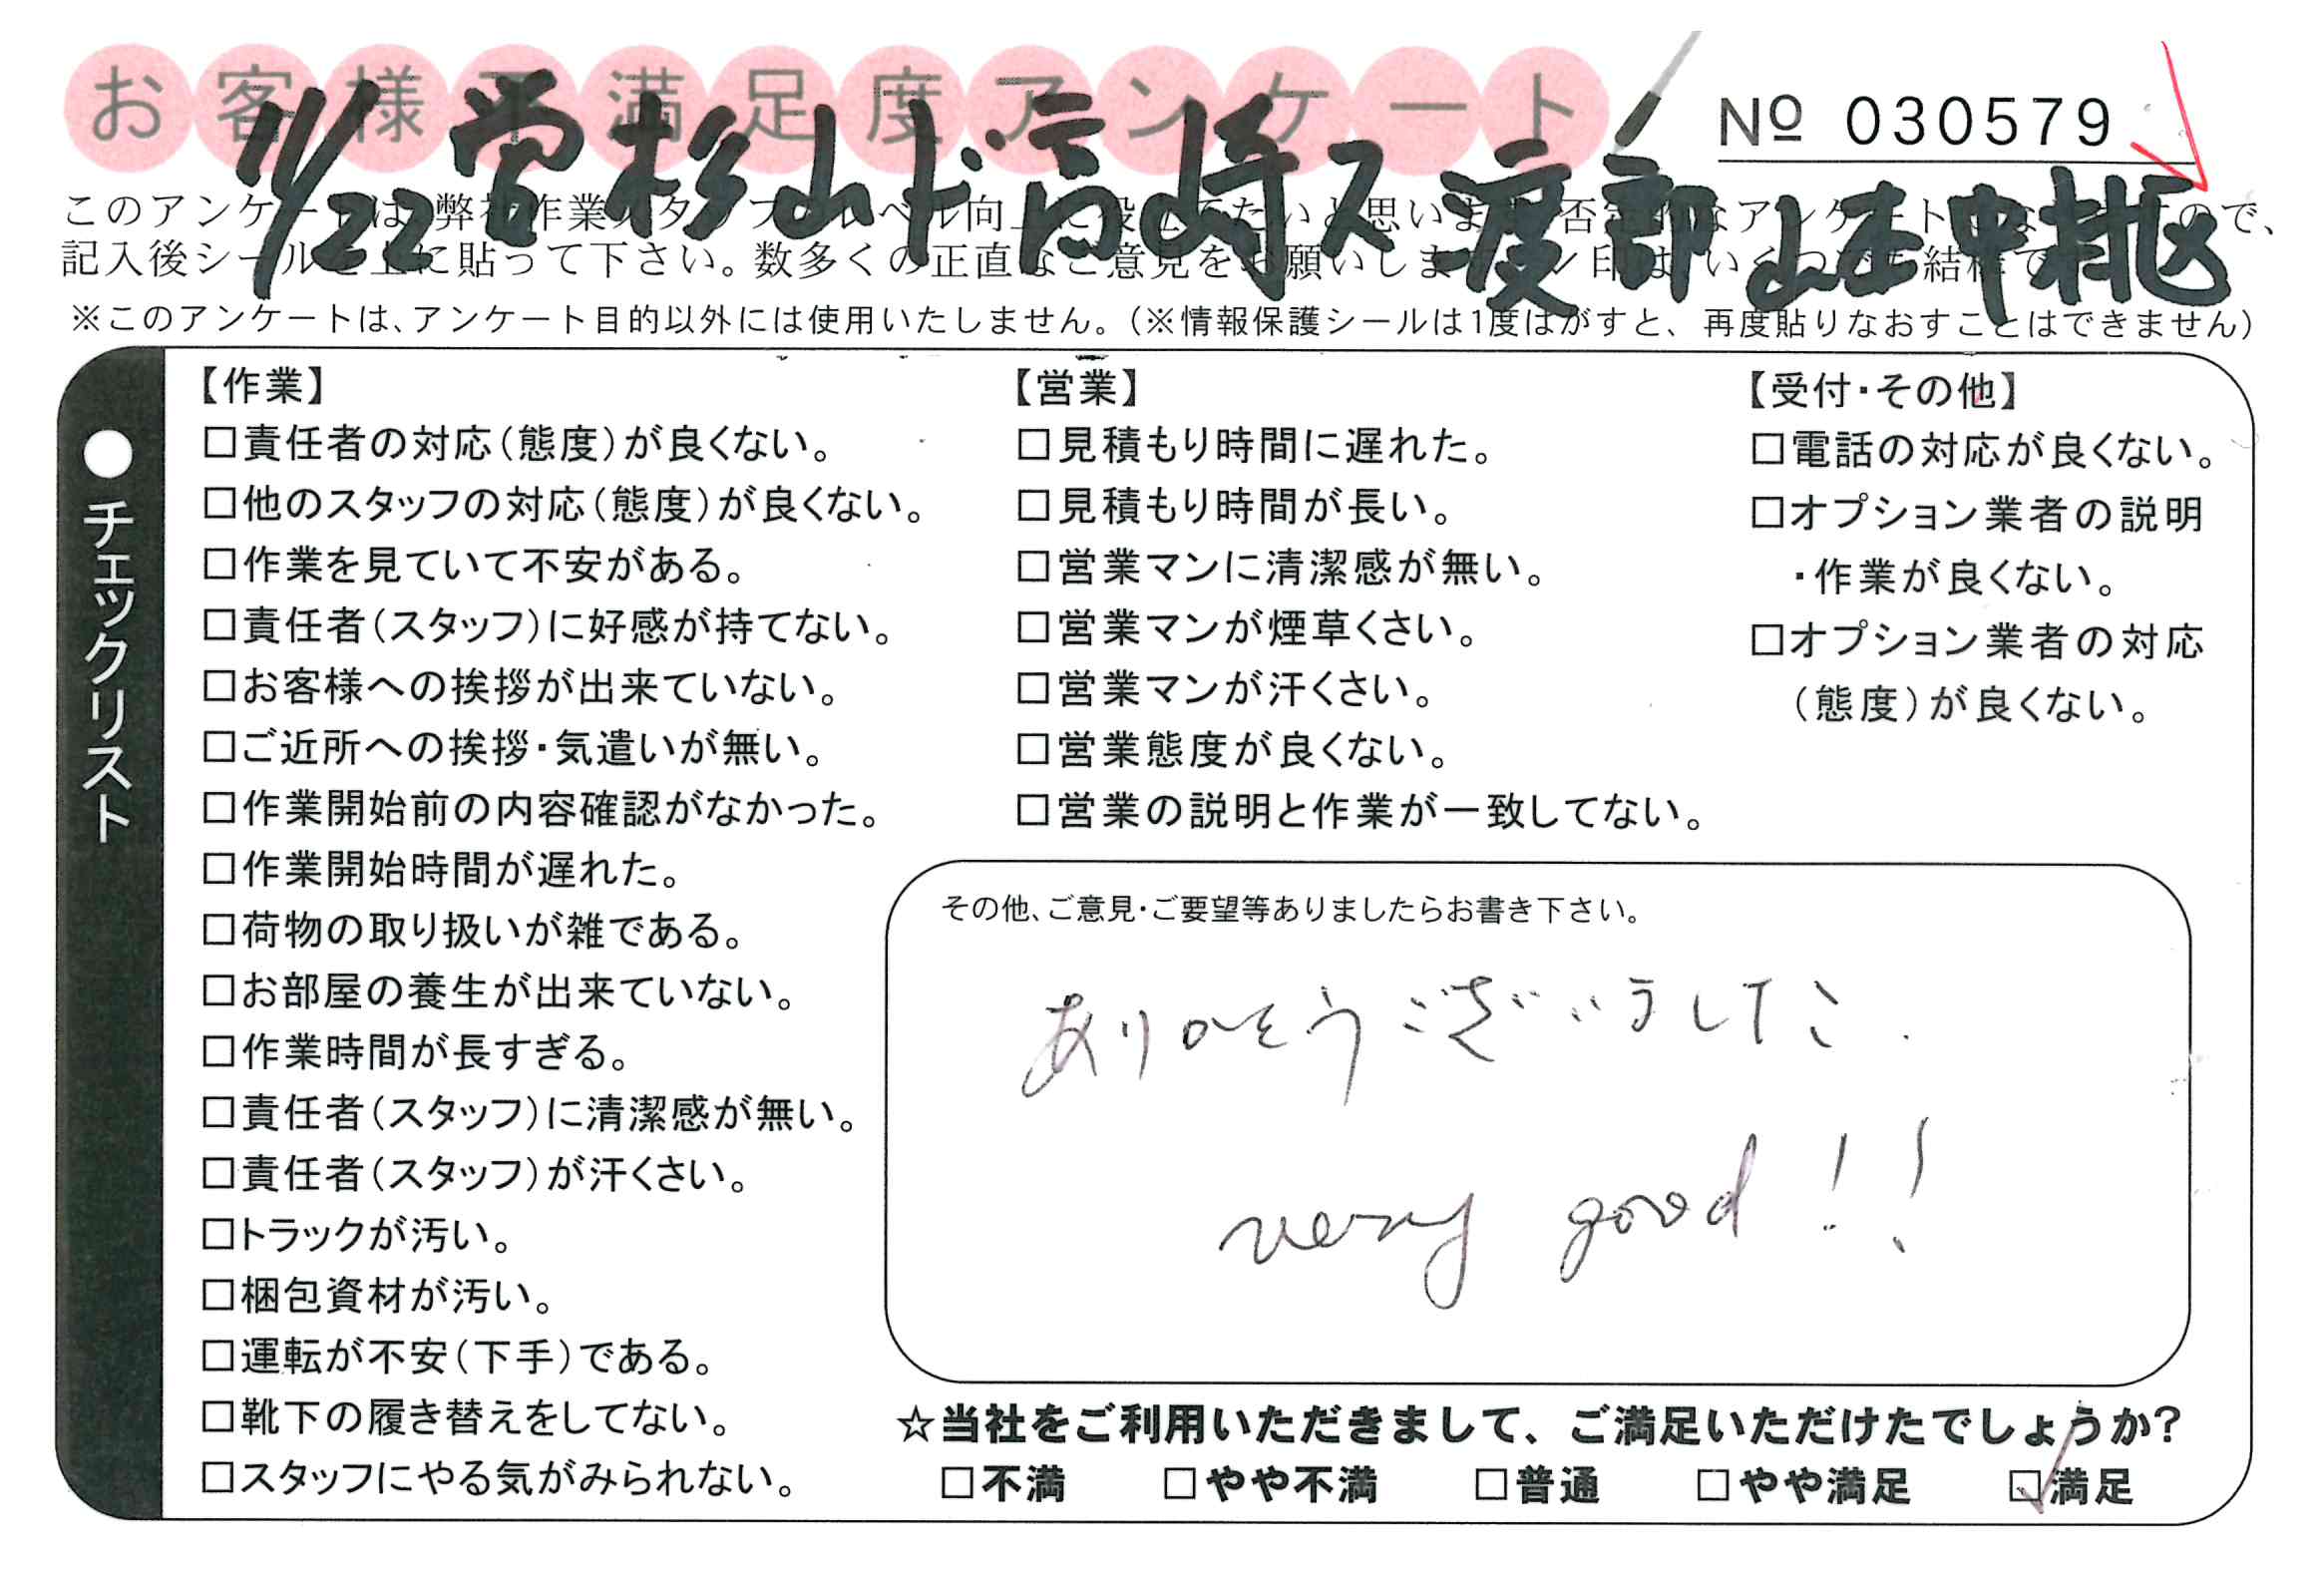 お客様不満足度アンケート
№ 030579
11/22 営杉山ド高崎ス渡部 山本 中村
このアンケートは、弊社作業スタッフのレベル向上に役立てたいと思います。否定的なアンケートになりますので、
記入後シールを上に貼って下さい。数多くの正直なご意見をお願いします。レ印はいくつでも結構です。
※このアンケートは、アンケート目的以外には使用いたしません。(※情報保護シールは1度はがすと、再度貼りなおすことはできません)
●チェックリスト
【作業】
□責任者の対応(態度)が良くない。
□他のスタッフの対応(態度)が良くない。
□作業を見ていて不安がある。
□責任者(スタッフ)に好感が持てない。
□お客様への挨拶が出来ていない。
□ご近所への挨拶・気遣いが無い。
□作業開始前の内容確認がなかった。
□作業開始時間が遅れた。
□荷物の取り扱いが雑である。
□お部屋の養生が出来ていない。
□作業時間が長すぎる。
□責任者(スタッフ)に清潔感が無い。
□責任者(スタッフ)が汗くさい。
□トラックが汚い。
□梱包資材が汚い。
□運転が不安(下手)である。
□靴下の履き替えをしてない。
□スタッフにやる気がみられない。
【営業】
□見積もり時間に遅れた。
□見積もり時間が長い。
□営業マンに清潔感が無い。
□営業マンが煙草くさい。
□営業マンが汗くさい。
□営業態度が良くない。
□営業の説明と作業が一致してない。
【受付・その他】
□電話の対応が良くない。
□オプション業者の説明
・作業が良くない。
□オプション業者の対応
(態度)が良くない。
その他、ご意見・ご要望等ありましたらお書き下さい。
ありがとうございました.
very good!!
☆当社をご利用いただきまして、ご満足いただけたでしょうか?
□不満 □やや不満 □普通 □やや満足 ☑満足